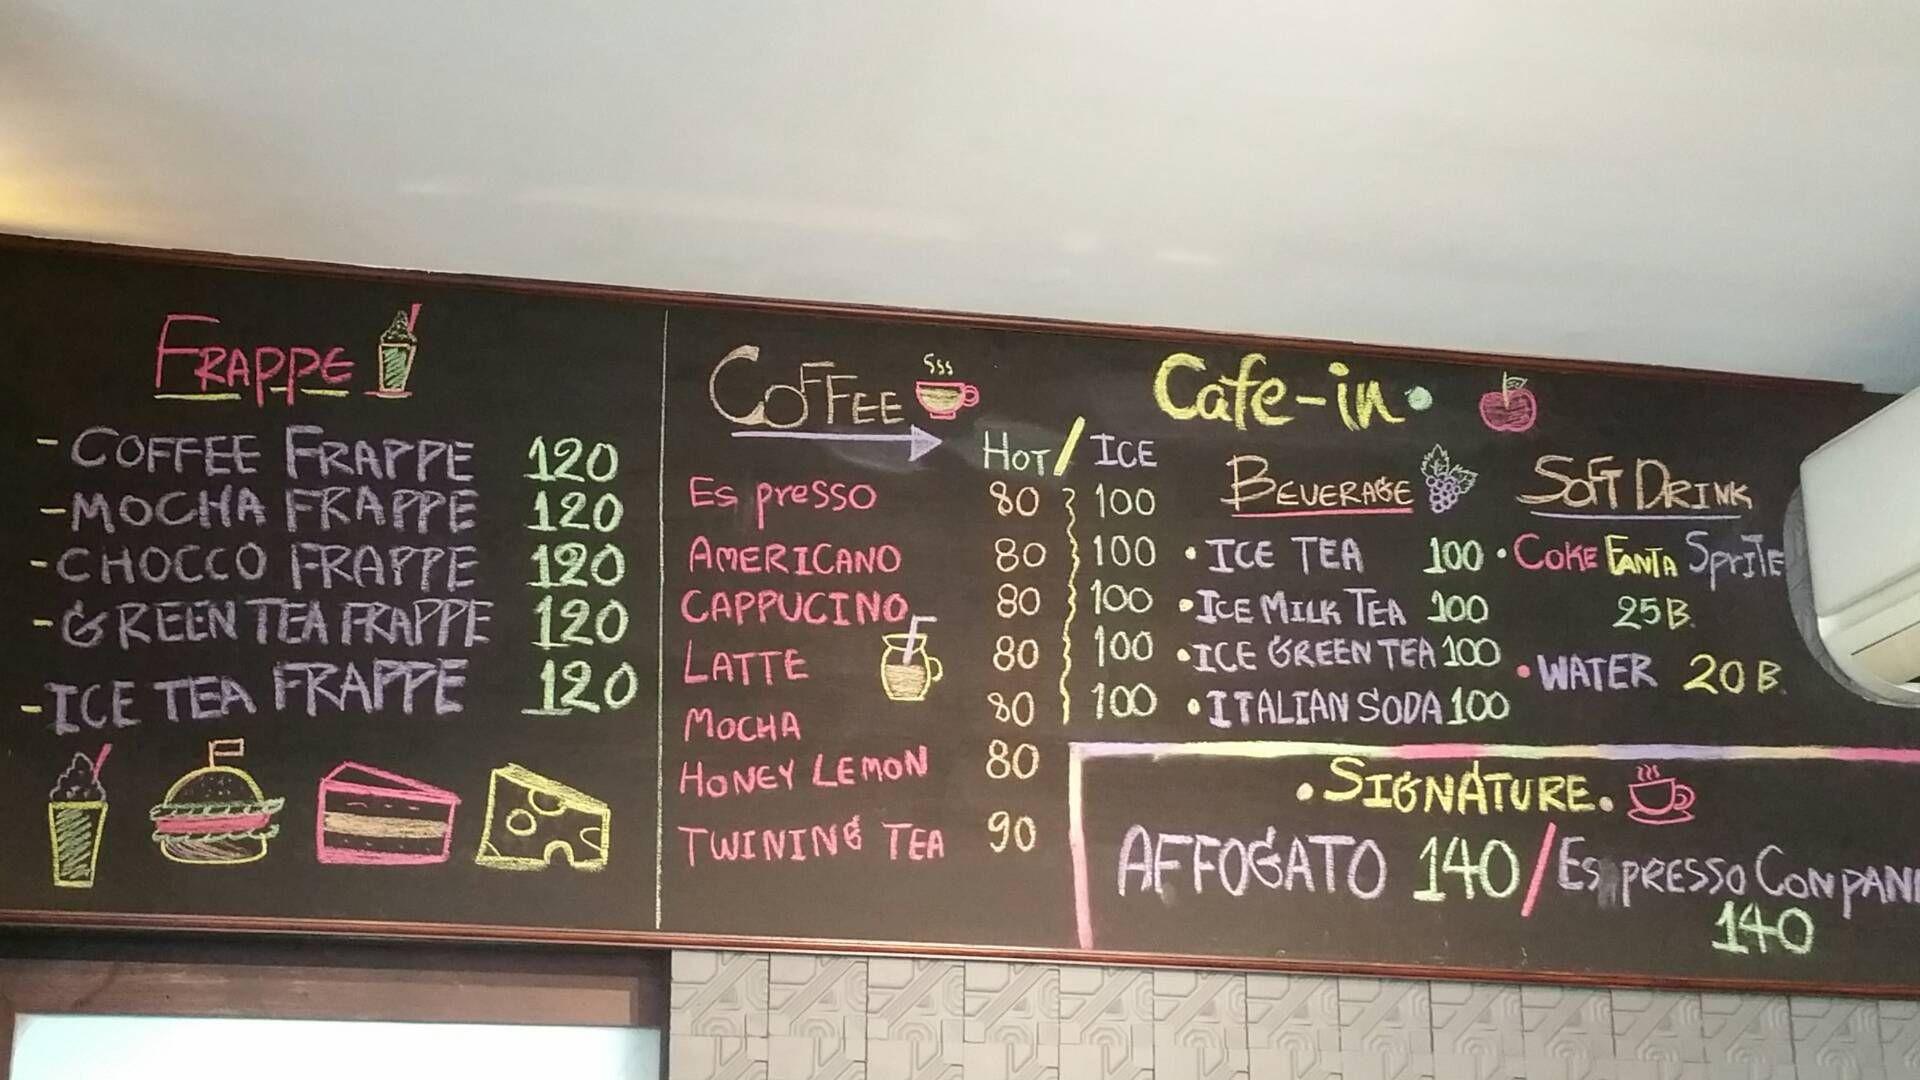 FRAPPE
- COFFEE FRAPPE 120
- MOCHA FRAPPE 120
- CHOCCO FRAPPE 120
- GREEN TEA FRAPPE 120
- ICE TEA FRAPPE 120
COFFEE
HOT / ICE
Espresso 80 100
AMERICANO 80 100
CAPPUCINO 80 100
LATTE 80 100
MOCHA 80 100
HONEY LEMON 80
TWINING TEA 90
Cafe-in
BEVERAGE
• ICE TEA 100
• ICE MILK TEA 100
• ICE GREEN TEA 100
• ITALIAN SODA 100
SOFT DRINK
• COKE FANTA SPRITE
25 B.
• WATER 20 B.
• SIGNATURE •
AFFOGATO 140 / ESPRESSO CONPAN
140